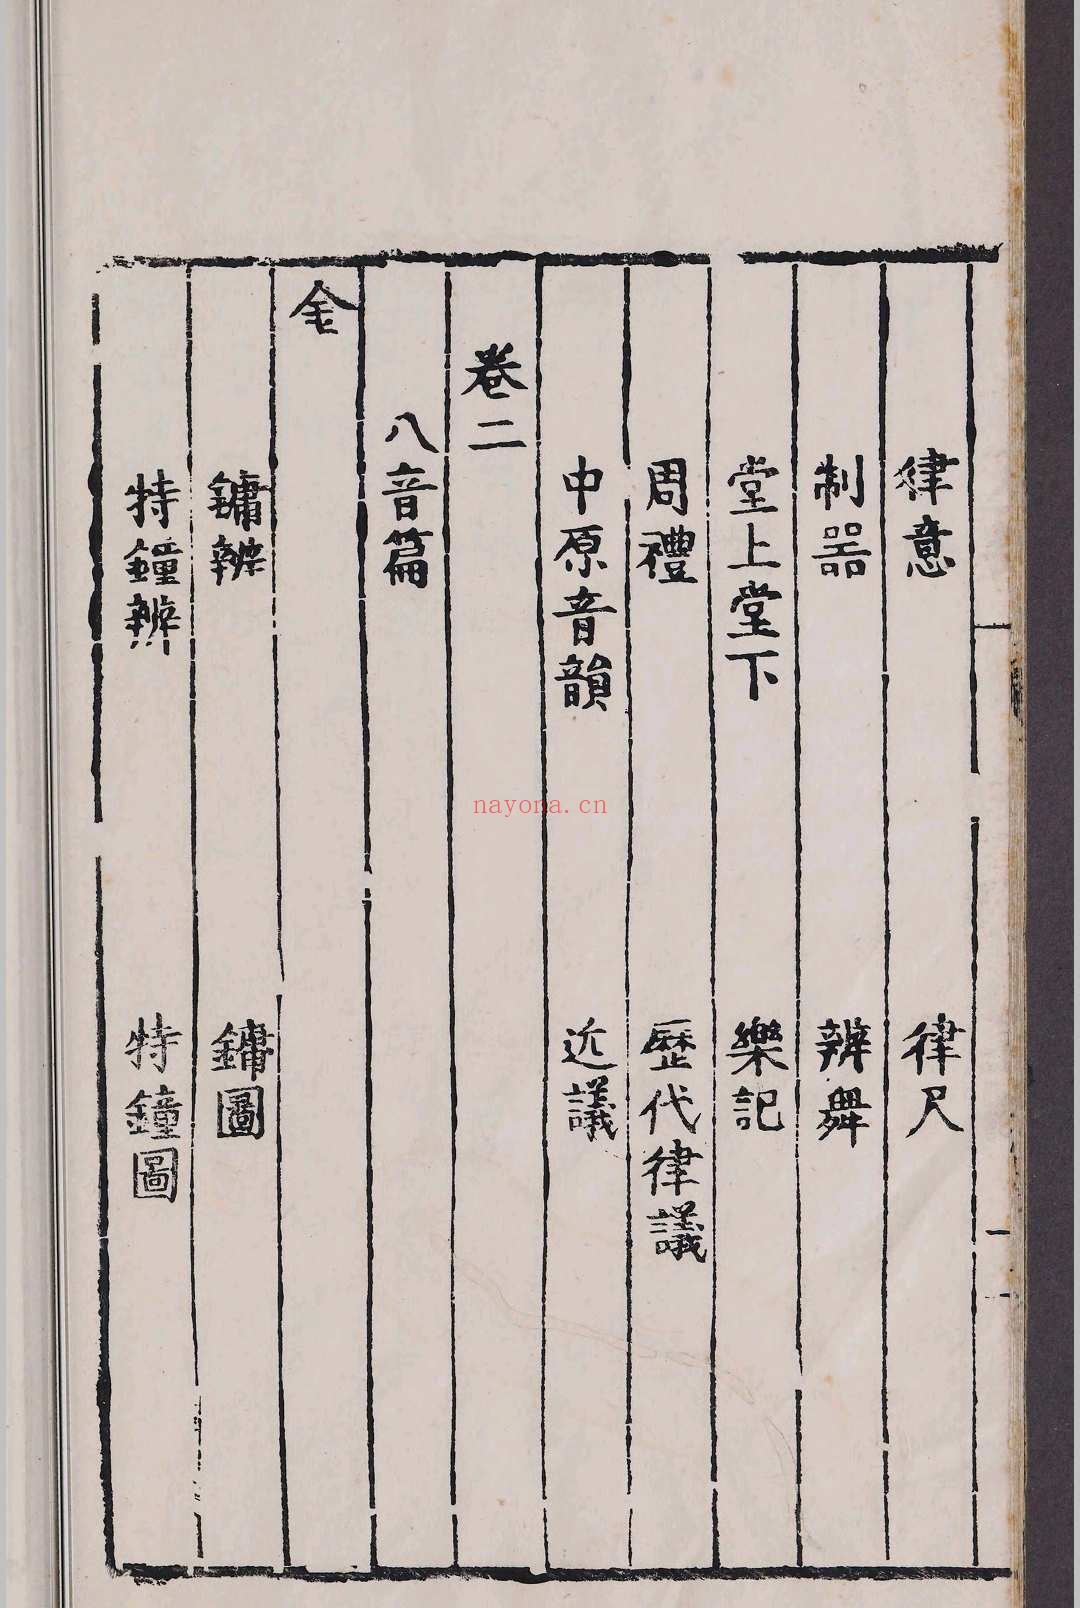 律意　律尺
制器　辨舞
堂上堂下　樂記
周禮　歷代律議
中原音韻　近議
卷二
八音篇
金
鏞辨　鏞圖
特鐘辨　特鐘圖
nayona.cn